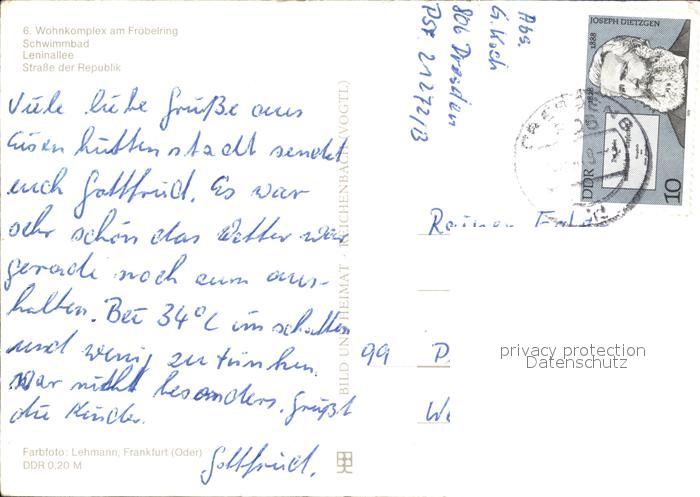 6. Wohnkomplex am Fröbelring
Schwimmbad
Leninallee
Straße der Republik
Viele liebe Grüße aus
Eisenhüttenstadt sendet
euch Gottfried. Es war
sehr schön das Wetter war
gerade noch zum aus-
halten. Bei 34°C im schatten
und wenig zu trinken.
War nicht besonders. Grüßt
die Kinder.
Gottfried.
Farbfoto: Lehmann, Frankfurt (Oder)
DDR 0,20 M
BILD UND HEIMAT · REICHENBACH (VOGTL)
Abs.
G. Koch
806 Dresden
PSF 21272/13
JOSEPH DIETZGEN
1828 1888
DDR
10
Rainer
99 P
We
privacy protection
Datenschutz